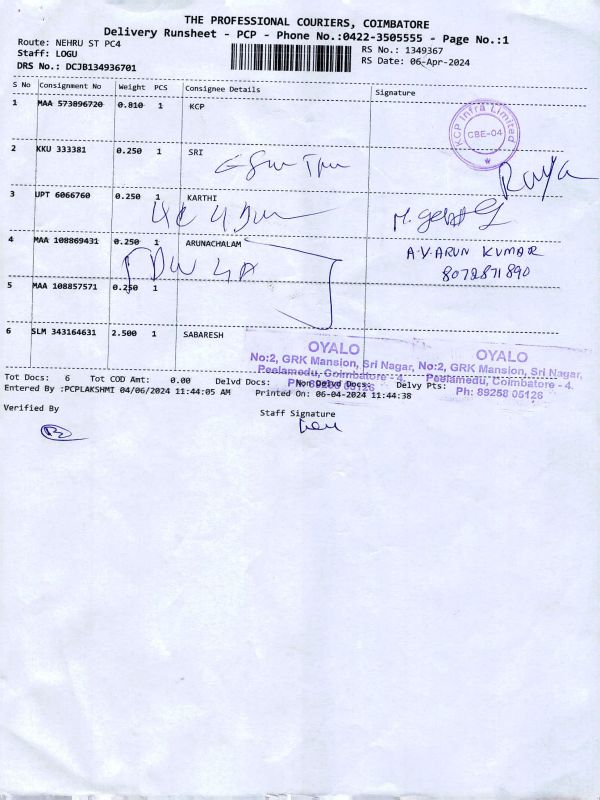 THE PROFESSIONAL COURIERS, COIMBATORE
Delivery Runsheet - PCP - Phone No.:0422-3505555 - Page No.:1
Route: NEHRU ST PC4
Staff: LOGU
DRS No.: DCJB134936701
RS No.: 1349367
RS Date: 06-Apr-2024
S No Consignment No Weight PCS Consignee Details Signature
1 MAA 573896720 0.810 1 KCP
KCP Infra Limited
CBE-04
2 KKU 333381 0.250 1 SRI
3 UPT 6066760 0.250 1 KARTHI
4 MAA 108869431 0.250 1 ARUNACHALAM
A.V.ARUN KUMAR
8072871890
5 MAA 108857571 0.250 1
6 SLM 343164631 2.500 1 SABARESH
OYALO
No:2, GRK Mansion, Sri Nagar,
Peelamedu, Coimbatore - 4.
Ph: 89258 05126
OYALO
No:2, GRK Mansion, Sri Nagar,
Peelamedu, Coimbatore - 4.
Ph: 89258 05126
Tot Docs: 6 Tot COD Amt: 0.00 Delvd Docs: Non Delvd Docs: Delvy Pts:
Entered By :PCPLAKSHMI 04/06/2024 11:44:05 AM Printed On: 06-04-2024 11:44:38
Verified By
Staff Signature